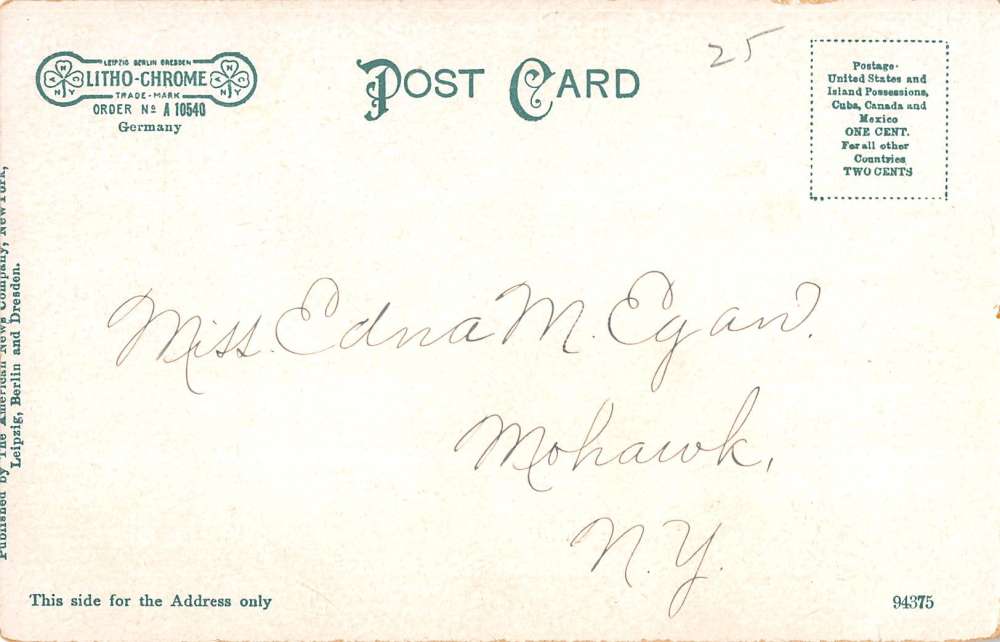 LEIPZIG BERLIN DRESDEN
LITHO-CHROME
TRADE-MARK
ORDER No A 10540
Germany
POST CARD
25
Postage-
United States and
Island Possessions,
Cuba, Canada and
Mexico
ONE CENT.
For all other
Countries
TWO CENTS
Published by The American News Company, New York,
Leipzig, Berlin and Dresden.
Miss. Edna M. Egan.
Mohawk,
N.Y.
This side for the Address only
94375